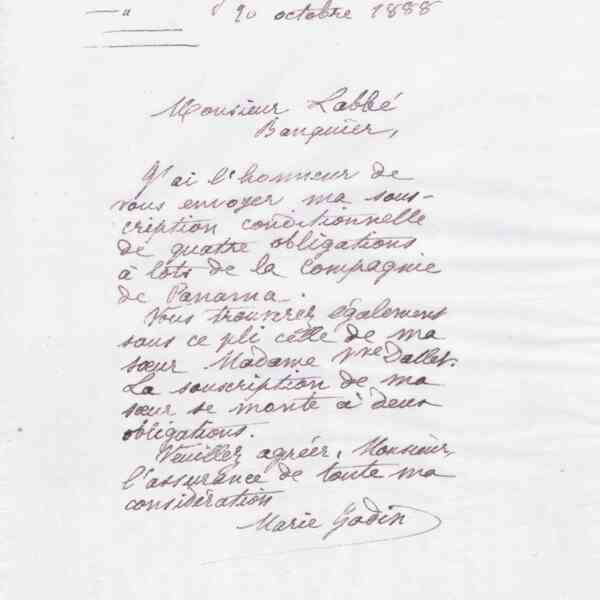 20 octobre 1888
Monsieur Labbé
Banquier,
J'ai l'honneur de
vous envoyer ma sous-
cription conditionnelle
de quatre obligations
à lots de la Compagnie
de Panama.
Vous trouverez également
sous ce pli cette de ma
sœur Madame Vve Dallet.
La souscription de ma
sœur se monte à deux
obligations.
Veuillez agréer, Monsieur,
l'assurance de toute ma
considération
Marie Godin